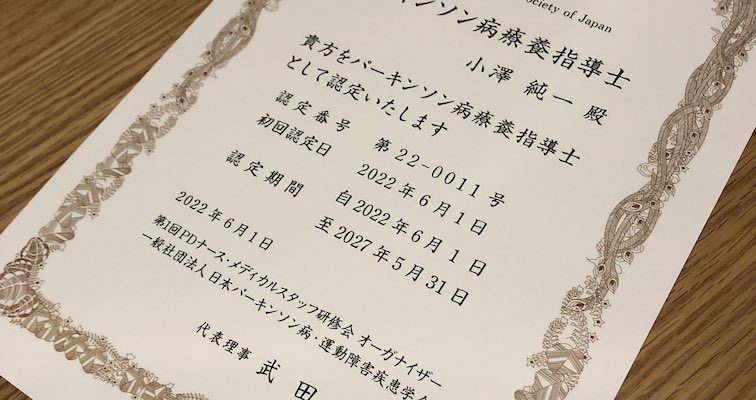 ociety of Japan
ンソン病療養指導士
小澤 純一 殿
貴方をパーキンソン病療養指導士
として認定いたします
認定番号 第22-0011号
初回認定日 2022年6月1日
認定期間 自2022年6月1日
至2027年5月31日
2022年6月1日
第1回PDナース・メディカルスタッフ研修会 オーガナイザー
一般社団法人日本パーキンソン病・運動障害疾患学会
代表理事 武田